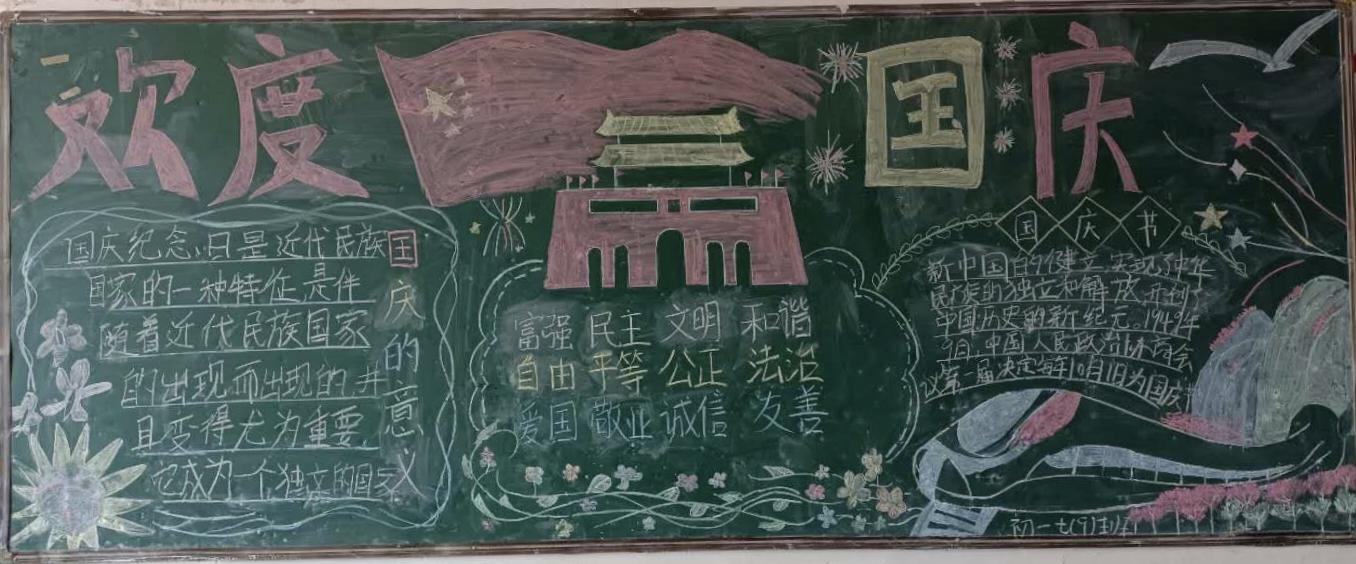 欢度国庆
国庆的意义
国庆纪念日是近代民族
国家的一种特征,是伴
随着近代民族国家
的出现而出现的,并
且变得尤为重要
它成为一个独立的国家
富强 民主 文明 和谐
自由 平等 公正 法治
爱国 敬业 诚信 友善
国庆节
新中国的建立,实现了中华
民族的独立和解放,开创了
中国历史的新纪元。1949年
9月,中国人民政治协商会
议第一届决定每年10月1日为国庆节
初一七(9)班